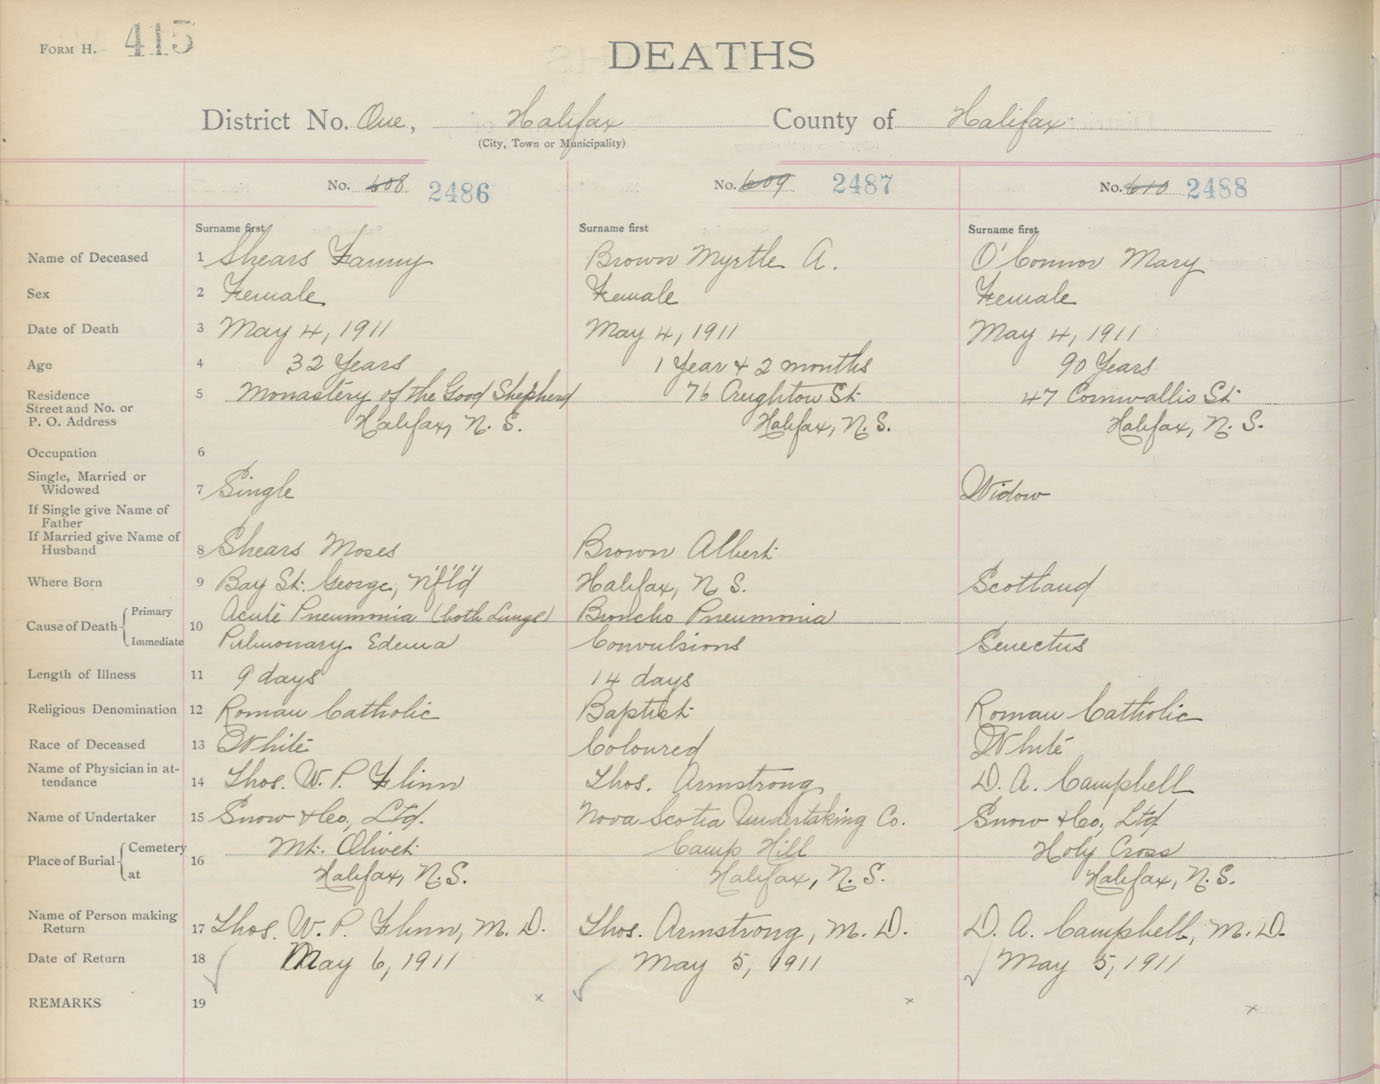 FORM H. 415
DEATHS
District No. One, Halifax County of Halifax
(City, Town or Municipality)
No. 608 2486 No. 609 2487 No. 610 2488
Surname first Surname first Surname first
Name of Deceased 1 Shears Fanny Brown Myrtle A. O'Connor Mary
Sex 2 Female Female Female
Date of Death 3 May 4, 1911 May 4, 1911 May 4, 1911
Age 4 32 Years 1 Year & 2 months 90 Years
Residence 5 Monastery of the Good Shepherd 76 Creighton St. 47 Cornwallis St.
Street and No. or
P. O. Address Halifax, N. S. Halifax, N. S. Halifax, N. S.
Occupation 6
Single, Married or
Widowed 7 Single Widow
If Single give Name of
Father
If Married give Name of
Husband 8 Shears Moses Brown Albert
Where Born 9 Bay St. George, N'f'l'd Halifax, N S. Scotland
Cause of Death Primary 10 Acute Pneumonia (both Lungs) Broncho Pneumonia
Immediate Pulmonary Edema Convulsions Senectus
Length of Illness 11 9 days 14 days
Religious Denomination 12 Roman Catholic Baptist Roman Catholic
Race of Deceased 13 White Coloured White
Name of Physician in at-
tendance 14 Thos. W. P. Flinn Thos. Armstrong D. A. Campbell
Name of Undertaker 15 Snow & Co., Ltd. Nova Scotia Undertaking Co. Snow & Co., Ltd
Place of Burial Cemetery 16 Mt. Olivet Camp Hill Holy Cross
at Halifax, N. S. Halifax, N. S. Halifax, N. S.
Name of Person making
Return 17 Thos. W. P. Flinn, M. D. Thos. Armstrong, M. D. D. A. Campbell, M. D.
Date of Return 18 May 6, 1911 May 5, 1911 May 5, 1911
REMARKS 19 x x x